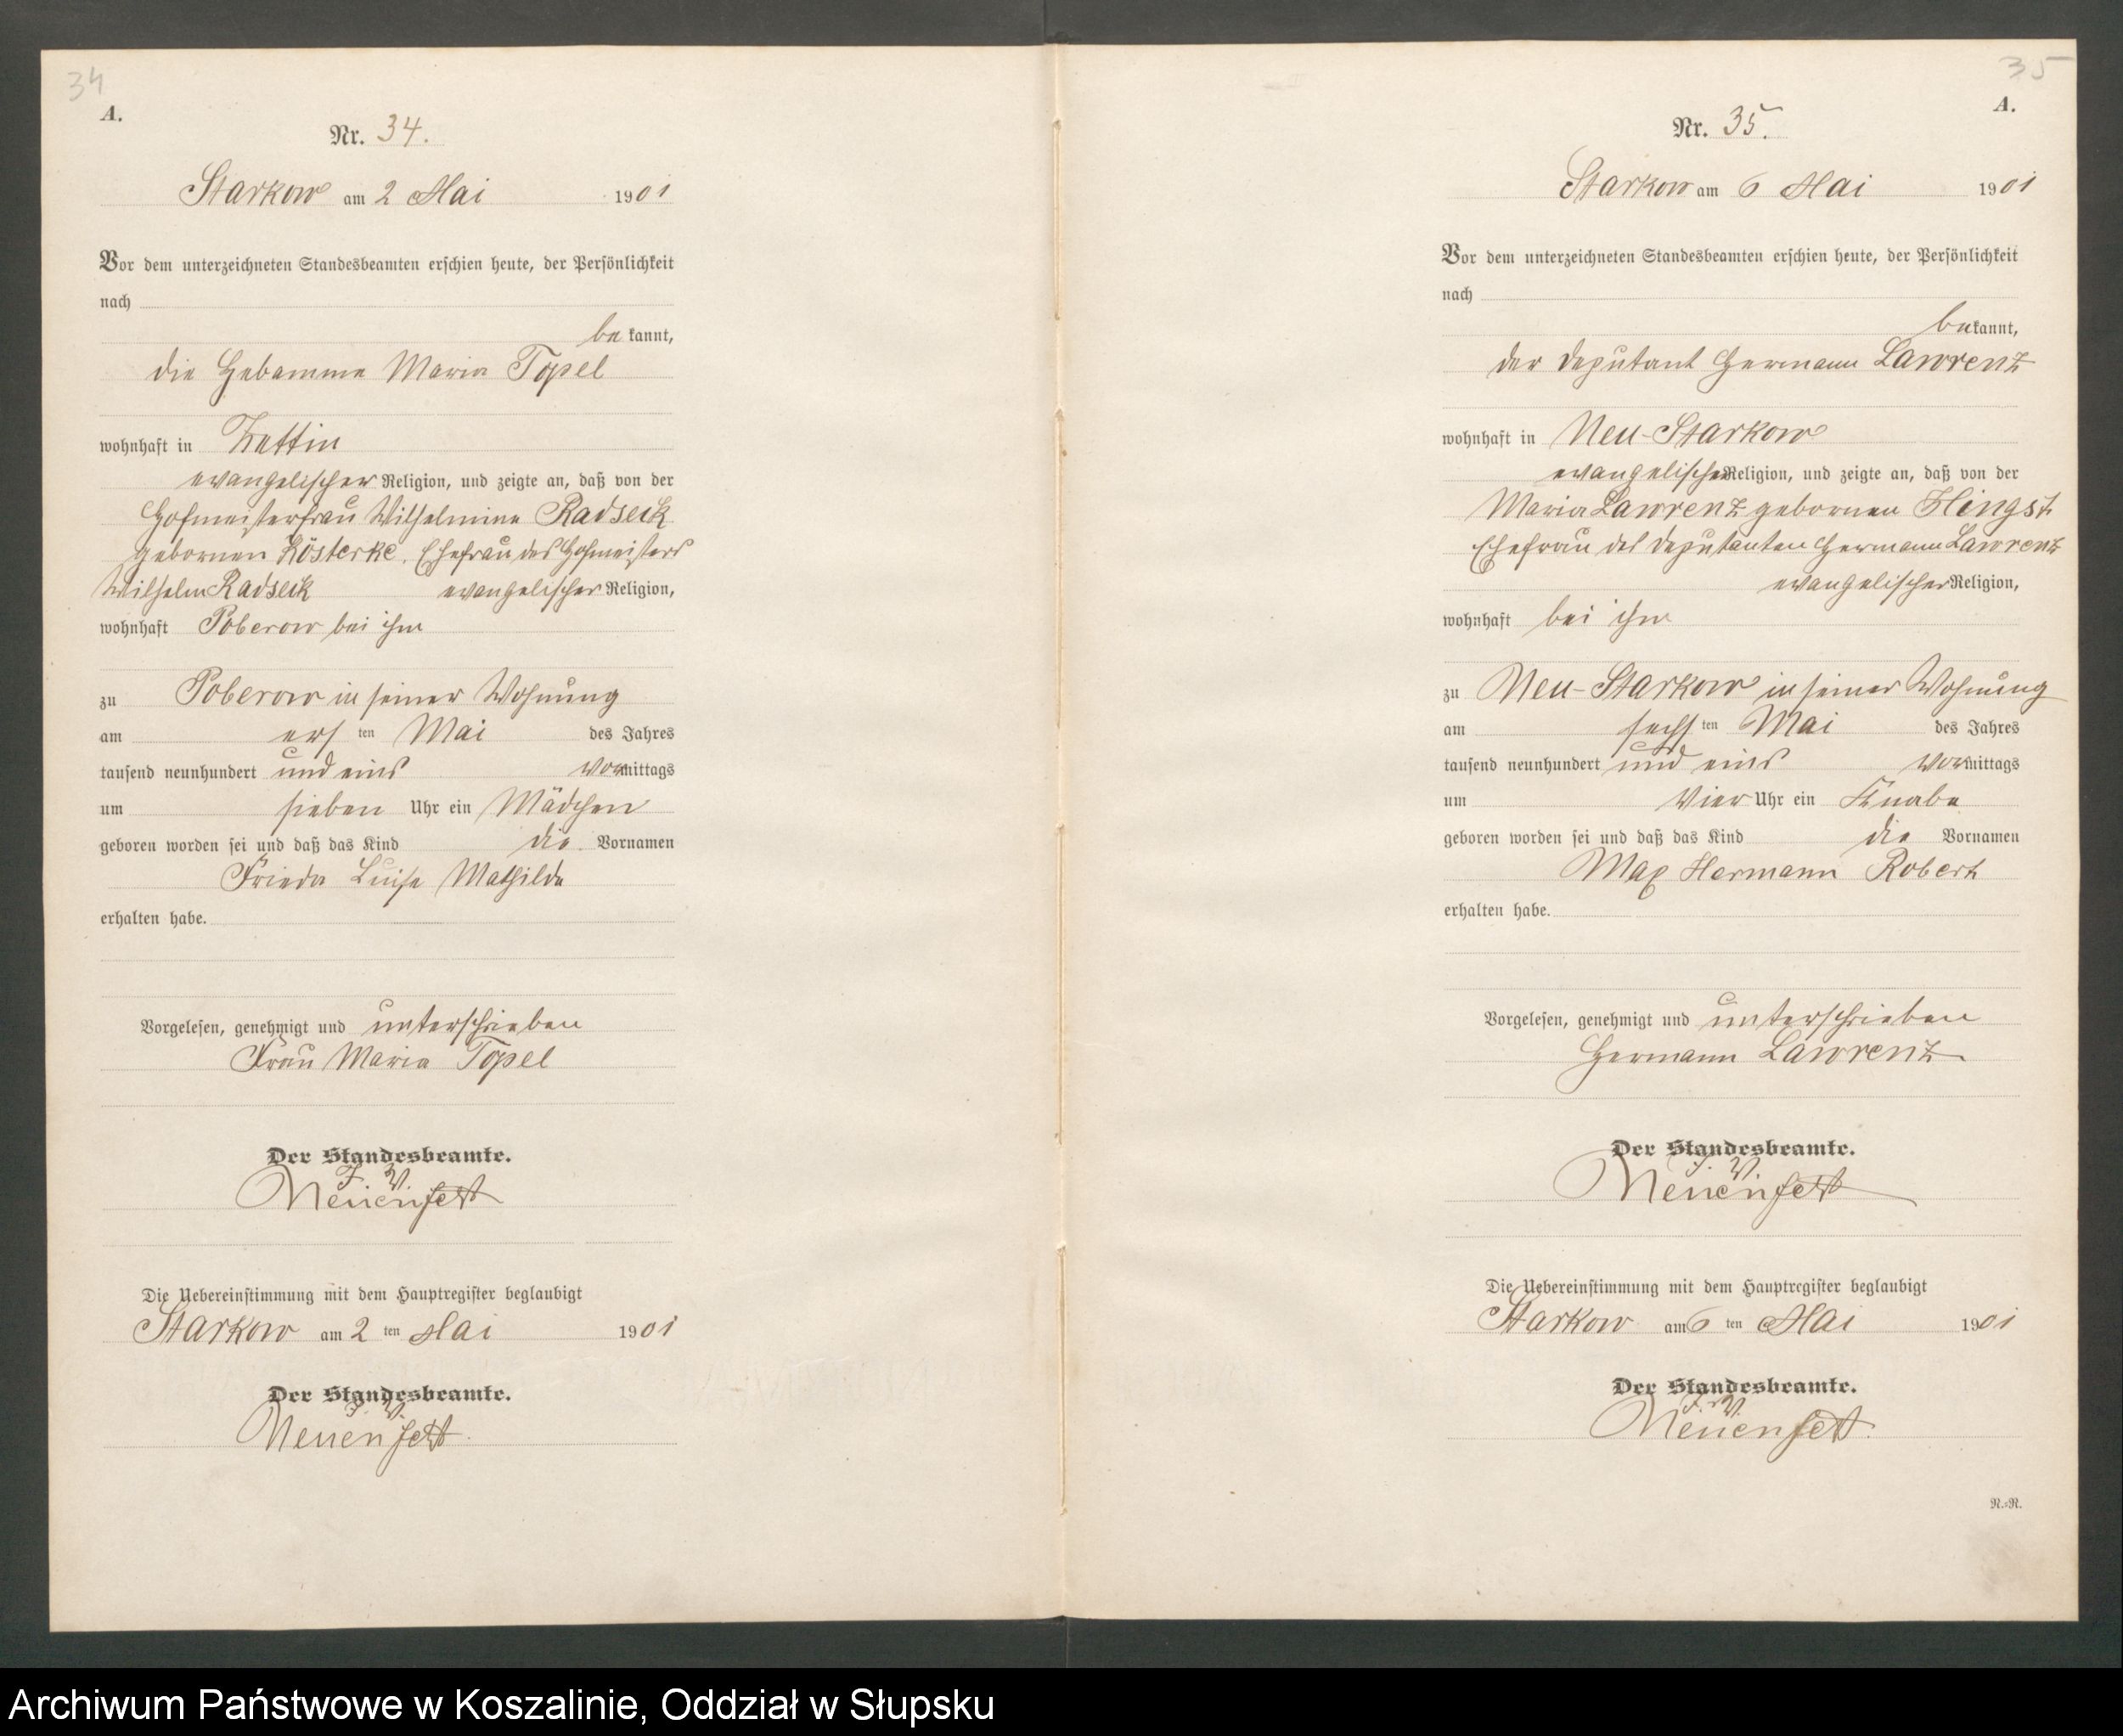 34
A.
Nr. 34.
Starkow am 2 Mai 1901
Vor dem unterzeichneten Standesbeamten erschien heute, der Persönlichkeit
nach
be kannt,
die Hebamme Maria Topel
wohnhaft in Zettin
evangelischer Religion, und zeigte an, daß von der
Hofmeisterfrau Wilhelmine Radseck
gebornen Kösterke, Ehefrau des Hofmeisters
Wilhelm Radseck evangelischer Religion,
wohnhaft Poberow bei ihm
zu Poberow in seiner Wohnung
am ersten Mai des Jahres
tausend neunhundert und eins vormittags
um sieben Uhr ein Mädchen
geboren worden sei und daß das Kind die Vornamen
Frieda Luise Mathilde
erhalten habe.
Vorgelesen, genehmigt und unterschrieben
Frau Maria Topel
Der Standesbeamte.
J. V.
Neuenfeldt
Die Uebereinstimmung mit dem Hauptregister beglaubigt
Starkow am 2 ten Mai 1901
Der Standesbeamte.
J. V.
Neuenfeldt.
35
A.
Nr. 35.
Starkow am 6 Mai 1901
Vor dem unterzeichneten Standesbeamten erschien heute, der Persönlichkeit
nach
bekannt,
der Deputant Hermann Lawrenz
wohnhaft in Neu-Starkow
evangelischer Religion, und zeigte an, daß von der
Maria Lawrenz gebornen Hingst
Ehefrau des Deputanten Hermann Lawrenz
evangelischer Religion,
wohnhaft bei ihm
zu Neu-Starkow in seiner Wohnung
am sechsten Mai des Jahres
tausend neunhundert und eins vormittags
um vier Uhr ein Knabe
geboren worden sei und daß das Kind die Vornamen
Max Hermann Robert
erhalten habe.
Vorgelesen, genehmigt und unterschrieben
Hermann Lawrenz
Der Standesbeamte.
J. V.
Neuenfeldt
Die Uebereinstimmung mit dem Hauptregister beglaubigt
Starkow am 6 ten Mai 1901
Der Standesbeamte.
J. V.
Neuenfeldt.
R.=R.
Archiwum Państwowe w Koszalinie, Oddział w Słupsku